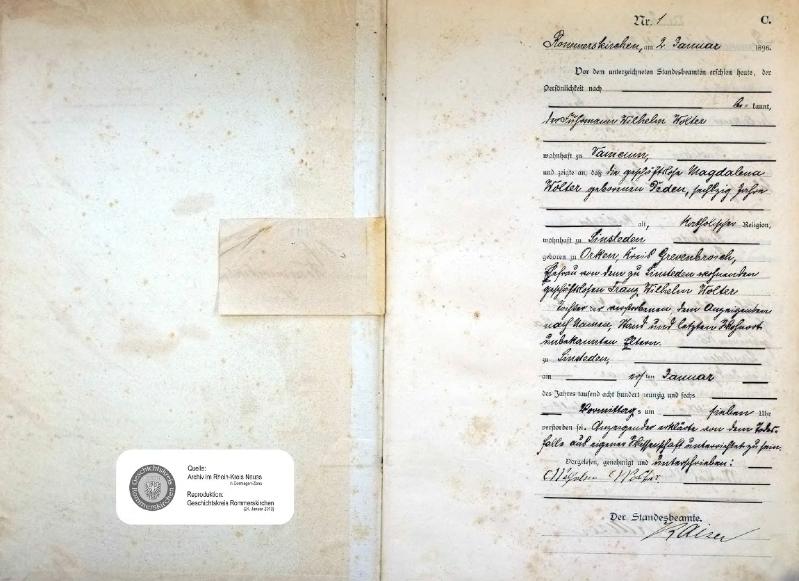 Geschichtskreis
Rommerskirchen
Quelle:
Archiv im Rhein-Kreis Neuss
in Dormagen-Zons
Reproduktion:
Geschichtskreis Rommerskirchen
Nr. 1
C.
Rommerskirchen, am 2 Januar 1896.
Vor dem unterzeichneten Standesbeamten erschien heute, der
Persönlichkeit nach
be kannt,
der Fuhrmann Wilhelm Wolter
wohnhaft zu
und zeigte an, daß die geschäftslose Magdalena
Wolter geborenen Deden, sechszig Jahre
alt, katholischer Religion,
wohnhaft zu Sinsteden
geboren zu Orken, Kreis Grevenbroich,
Ehefrau von dem zu Sinsteden wohnenden
geschäftslosen Franz Wilhelm Wolter
Tochter der verstorbenen, dem Anzeigenden
nach Namen, Stand und letzten Wohnort
unbekannten Eltern.
zu Sinsteden,
am ersten Januar
des Jahres tausend acht hundert neunzig und sechs
Vormittags um sieben Uhr
verstorben sei. Anzeigender erklärte von dem Todes-
falle aus eigener Wissenschaft unterrichtet zu sein.
Vorgelesen, genehmigt und unterschrieben:
Wilhelm Wolter
Der Standesbeamte.